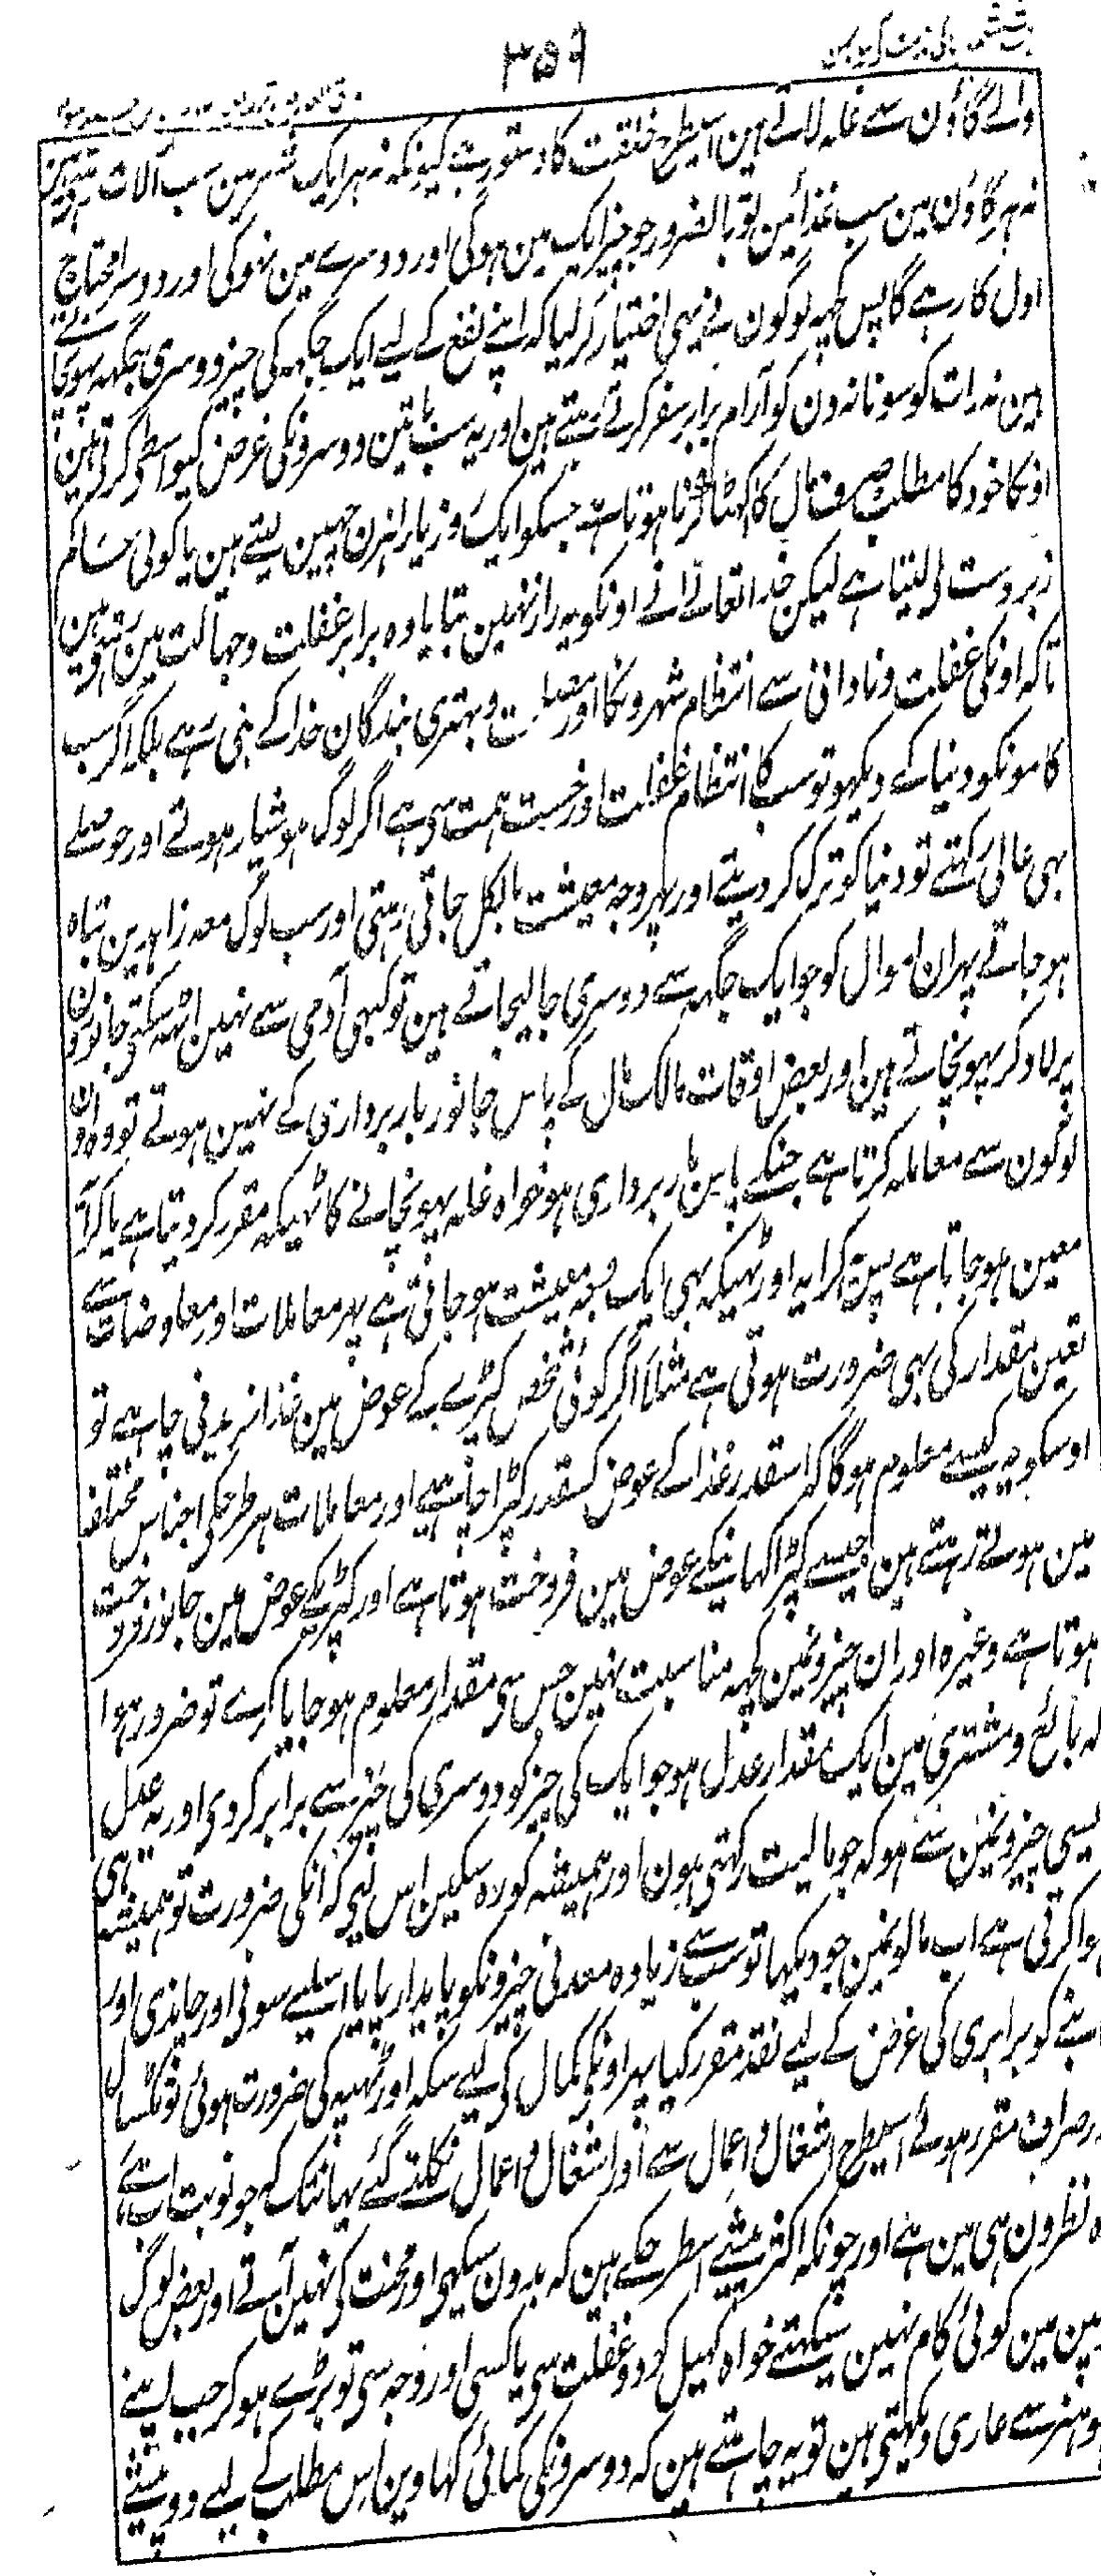 ۳۵۶
والے گاؤن سے غلہ لاتے ہین اسیطرح خلقت کا دستور ہے کیونکہ نہ ہر ایک شہر مین سب آلات ہوتے ہین
نہ ہر گاؤن مین سب غذائین تو بالضرور جو چیز ایک مین ہوگی اور دوسرے مین نہوگی اور دوسرا محتاج
اول کا رہے گا پس کچہہ لوگون نے یہی اختیار کر لیا کہ اپنے نفع کے لیے ایک جگہہ کی چیز دوسری جگہہ پہونچاتے
ہین نہ رات کو سونا نہ دن کو آرام برابر سفر کرتے رہتے ہین اور یہ سب باتین دوسرونکی غرض کیواسطی کرتی ہین
اونکا خود کا مطلب صرف مال کا اکہٹا کرنا ہوتا ہے جسکو ایک روز یا راہزن چہین لیتے ہین یا کوئی حاکم
زبردست لی لیتا ہے لیکن خدا تعالے نے اونکو یہ راز نہین بتایا وہ برابر غفلت و جہالت مین رہتے ہین
تاکہ اونکی غفلت و نادانی سے انتظام شہرونکا اور مصلحت و بہتری بندگان خدا کے بنی رہے بلکہ اگر سب
کامونکو دنیا کے دیکہو تو سب کا انتظام غفلت اور خست ہمت سی ہے اگر لوگ ہوشیار ہوتے اور حوصلے
بہی عالی رکہتے تو دنیا کو ترک کر دیتے اور پہر وجہ معیشت بالکل جاتی رہتی اور سب لوگ معہ زاہدین تباہ
ہو جاتے پہر ان اموال کو جو ایک جگہہ سے دوسری جا لیجاتے ہین تو کبہی آدمی سے نہین اٹہہ سکتی جانورون
پر لاد کر پہونچاتے ہین اور بعض اوقات مالک مال کے پاس جانور بار برداری کے نہین ہوتے تو وہ اون
لوگون سے معاملہ کرتا ہے جنکے پاس بار برداری ہو خواہ غلہ پہونچانے کا ٹہیکہ مقرر کر دیتا ہے یا کرایہ
معین ہو جاتا ہے پس کرایہ اور ٹہیکہ بہی ایک وجہ معیشت ہو جاتی ہے پہر معاملات اور معاوضات سے
تعین مقدار کی بہی ضرورت ہوتی ہے مثلاً اگر کوئی شخص کپڑے کے عوض مین غذا خریدنی چاہے تو
اوسکو یہ کیسے معلوم ہوگا کہ اسقدر غذا کے عوض کسقدر کپڑا چاہیے اور معاملات ہر طرحکی اجناس مختلفہ
مین ہوتے رہتے ہین جیسے کپڑا کہانیکے عوض مین فروخت ہوتا ہے اور کپڑیکے عوض مین جانور فروخت
ہوتا ہے وغیرہ اور ان چیزونمین کچہہ مناسبت نہین جس سی مقدار معلوم ہو جایا کرے تو ضرور ہوا
کہ بائع و مشتری مین ایک مقدار عدل ہو جو ایک کی چیز کو دوسری کی چیز سے برابر کر دی اور یہ عدل
ایسی چیزونمین سے ہو کہ جو مالیت رکہتی ہون اور ہمیشہ کو رہ سکین اس لیے کہ انکی ضرورت تو ہمیشہ ہی
ہوا کرتی ہے اب مالونمین جو دیکہا تو سب سے زیادہ معدنی چیزونکو پایدار پایا اسلیے سونی اور چاندی اور
تانبے کو برابری کی غرض کے لیے نقد مقرر کیا پہر اونکی کمال کے لیے سکہ اور ٹہپہ کی ضرورت ہوئی تو ٹکسال
اور صراف مقرر ہوئے اسیطرح اشغال و اعمال سے اور اشغال و اعمال نکلتے گئے یہانتک کہ جو نوبت اب ہے
وہ نظرون ہی مین ہے اور چونکہ اکثر پیشے اسطرحکے ہین کہ بدون سیکہی اور محنت کی نہین آتے اور بعض لوگ
بچپن مین کوئی کام نہین سیکہتے خواہ کہیل کود و غفلت سی یا کسی اور وجہ سی تو بڑے ہو کر جب اپنے
کو ہنر سے عاری دیکہتی ہین تو یہ چاہتے ہین کہ دوسرونکی کمائی کہاوین اس مطلب کے لیے دو پیشے